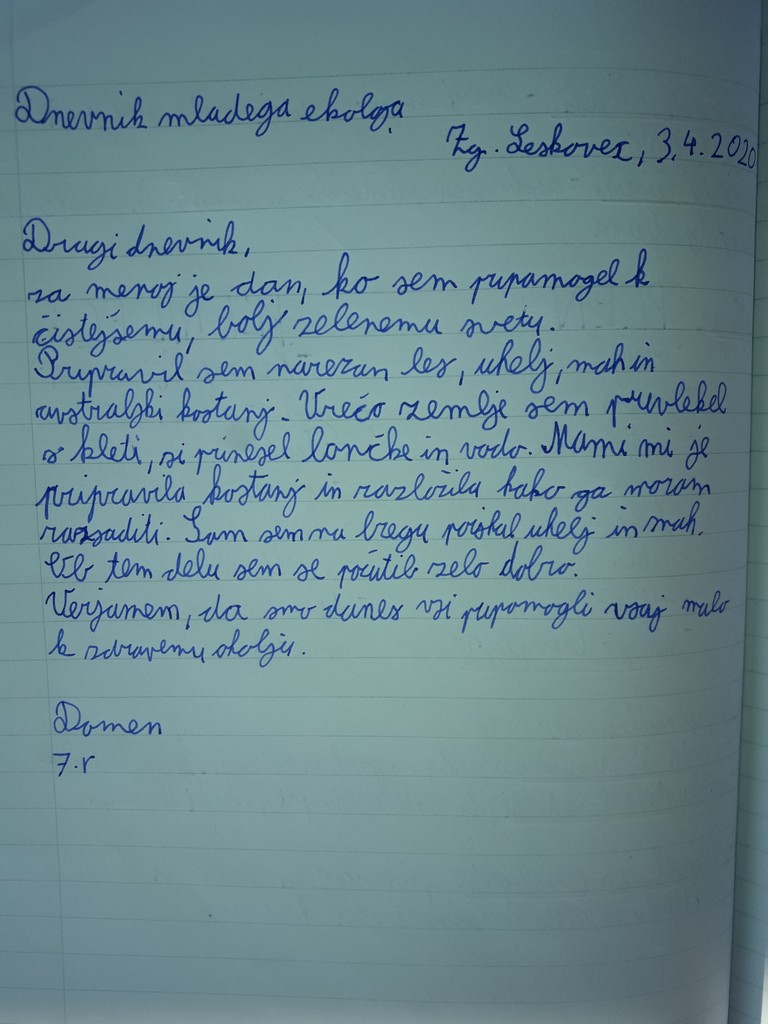 Dnevnik mladega ekologa
Zg. Leskovec, 3.4.2020
Dragi dnevnik,
za menoj je dan, ko sem pripomogel k
čistejšemu, bolj zelenemu svetu.
Pripravil sem narezan les, uhelj, mah in
avstralski kostanj. Vrečo zemlje sem privlekel
s kleti, si prinesel lončke in vodo. Mami mi je
pripravila kostanj in razložila kako ga moram
razsaditi. Sam sem na bregu poiskal uhelj in mah.
Ob tem delu sem se počutil zelo dobro.
Verjamem, da smo danes vsi pripomogli vsaj malo
k zdravemu okolju.
Domen
7.r